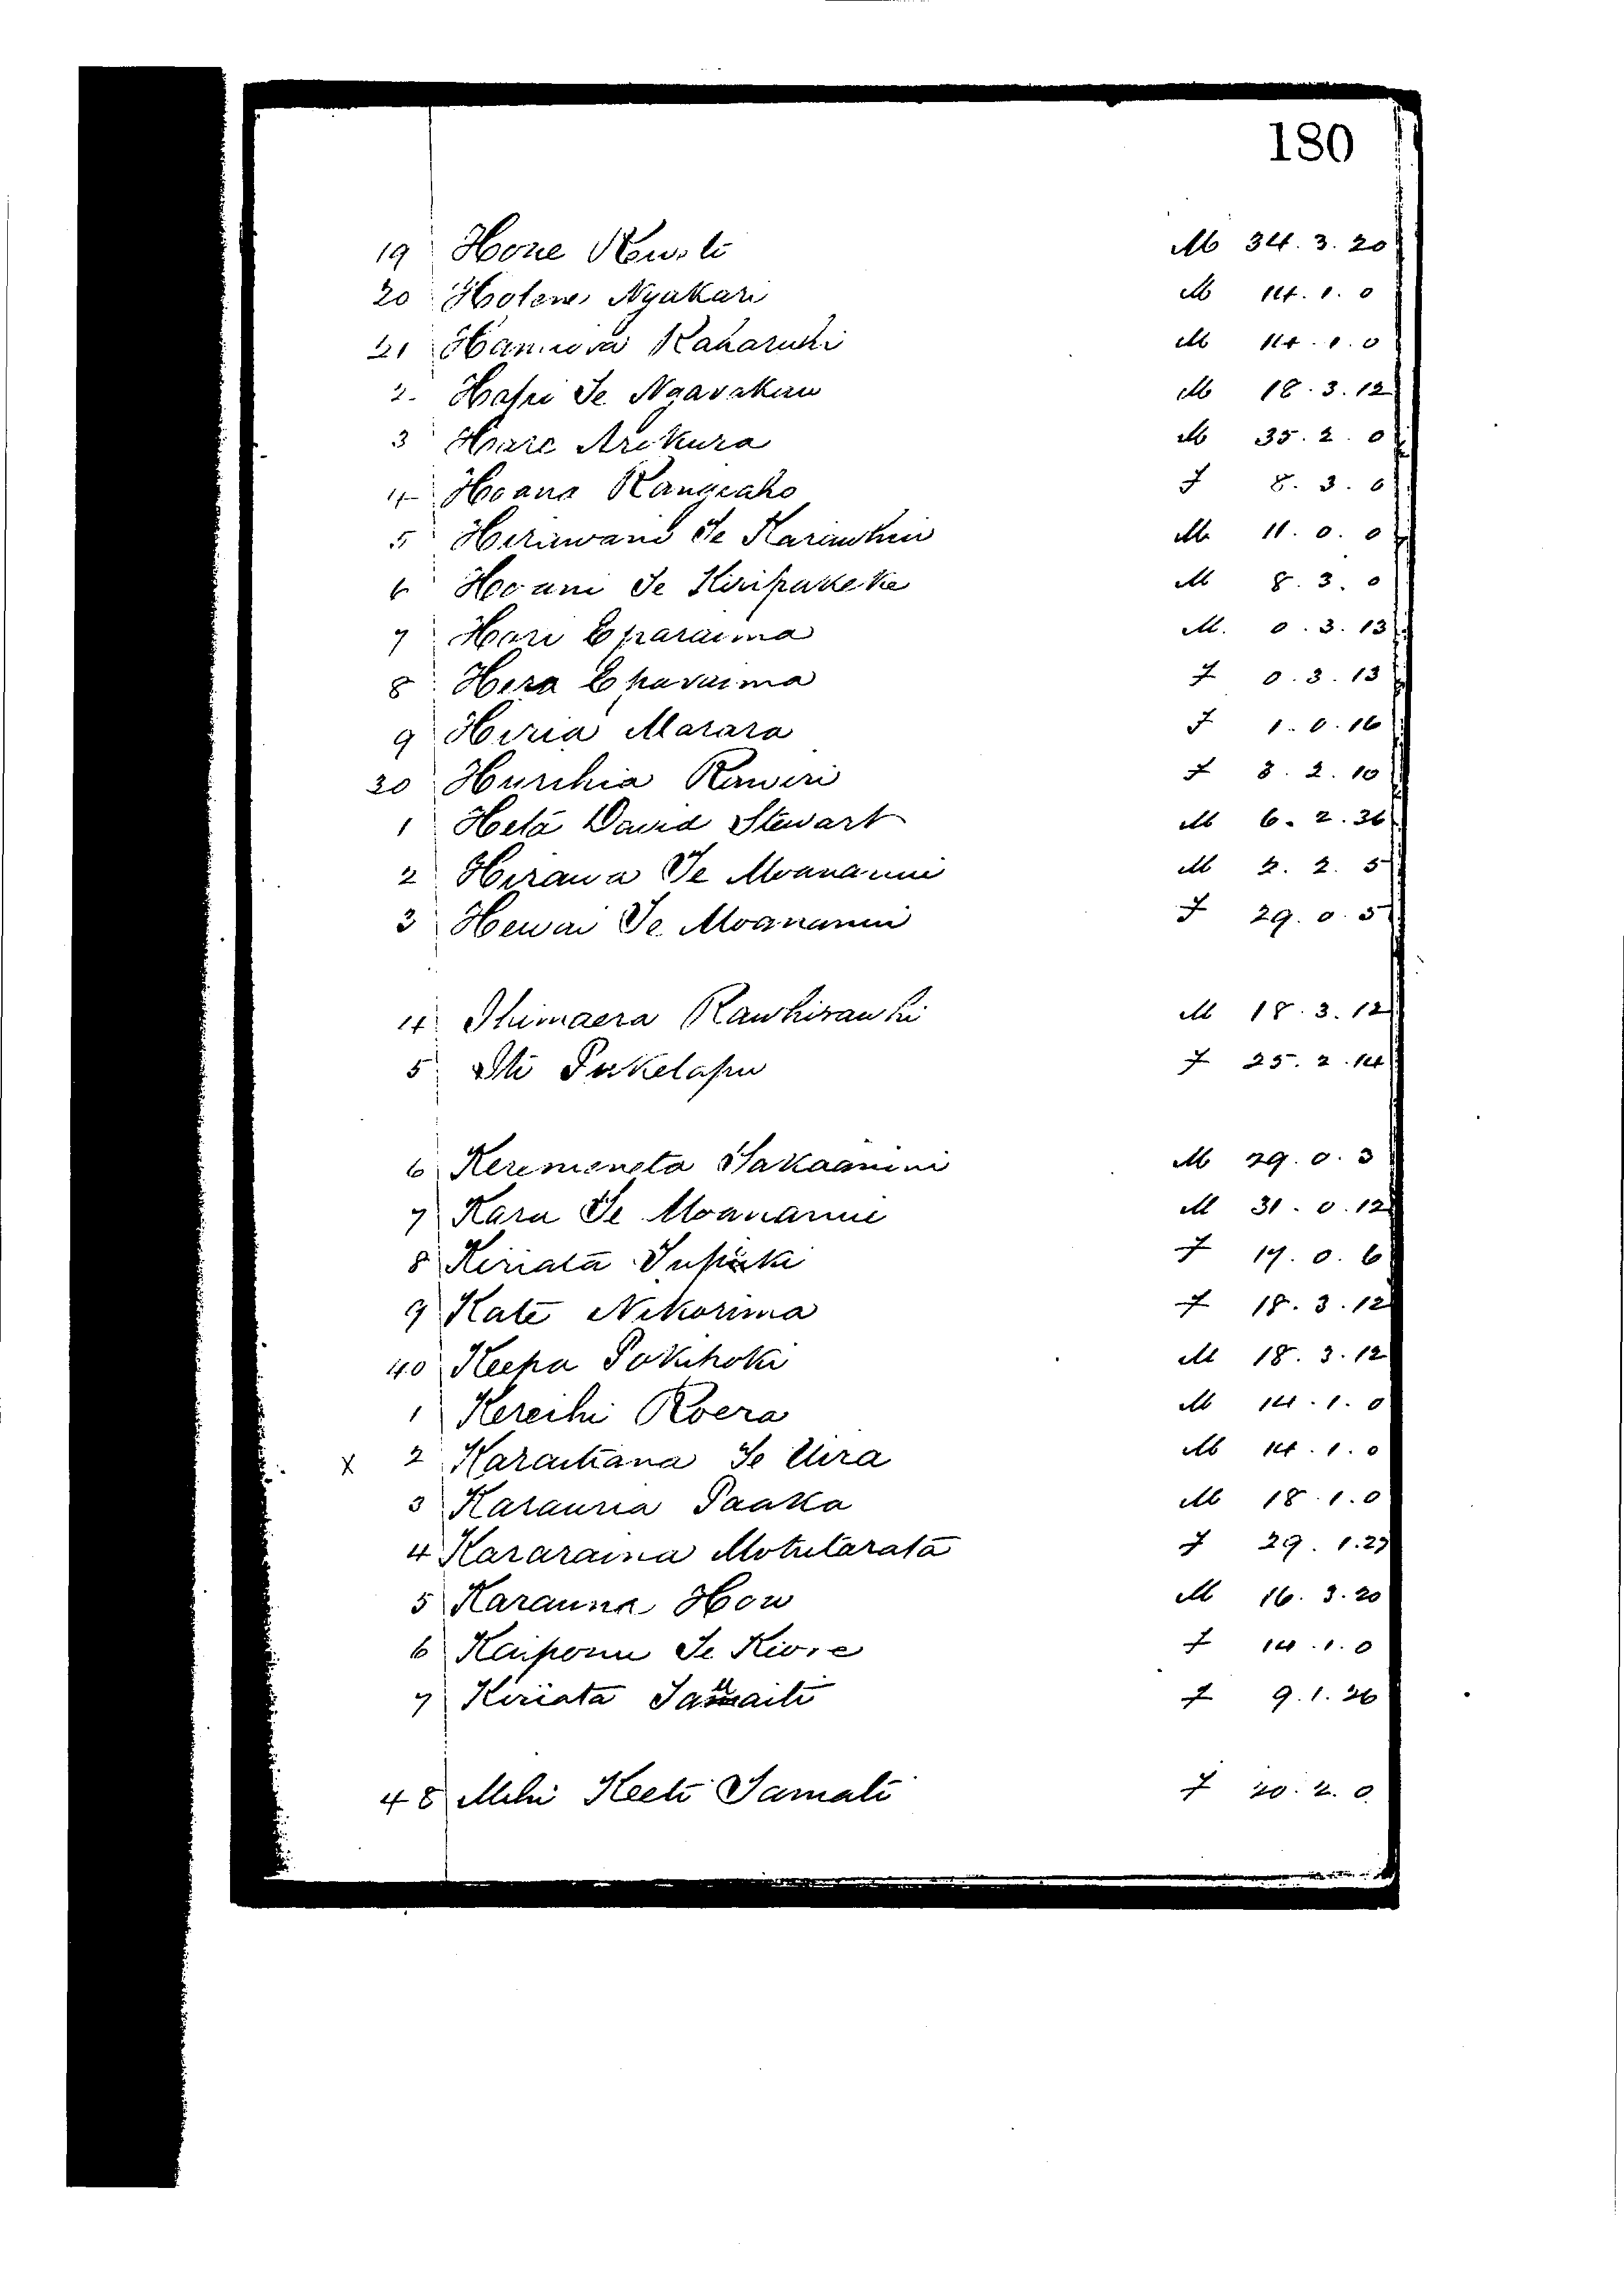 180
19 Hone M 34.3.20
20 Hotene Ngakari M 14.1.0
21 Hamiora Kaharuhi M 14.1.0
2 Hapi Te Ngarakau M 18.3.12
3 Hare Arekura M 35.2.0
4 Hoana Rangiaho F 8.3.0
5 Heriwani Te M 11.0.0
6 Hoani Te Kiripakeke M 8.3.0
7 Hori Eparaima M. 0.3.13
8 Hera Eparaima F 0.3.13
9 Hiria Marara F 1.0.16
30 Hurihia Raweri F 3.2.10
1 Heta David Stewart M 6.2.36
2 Herawa Te Moananui M 2.2.5
3 Hewai Te Moananui F 29.0.5
4 Ihimaera Rawhirawhi M 18.3.12
5 Iti Puketapu F 25.2.14
6 Keremeneta Takaanini M 29.0.3
7 Karu Te Moananui M 31.0.12
8 Keriata Tupuki F 17.0.6
9 Kate Nikorima F 18.3.12
40 Keepa Pokihoki M 18.3.12
1 Kereihi Roera M 14.1.0
X 2 Karaitiana Te Uira M 14.1.0
3 Karauria Paaka M 18.1.0
4 Kararaina Motutarata F 29.1.27
5 Karauna Hou M 16.3.20
6 Kaiponu Te Kiore F 14.1.0
7 Keriata F 9.1.26
48 Mihi Keeti Tamati F 20.2.0